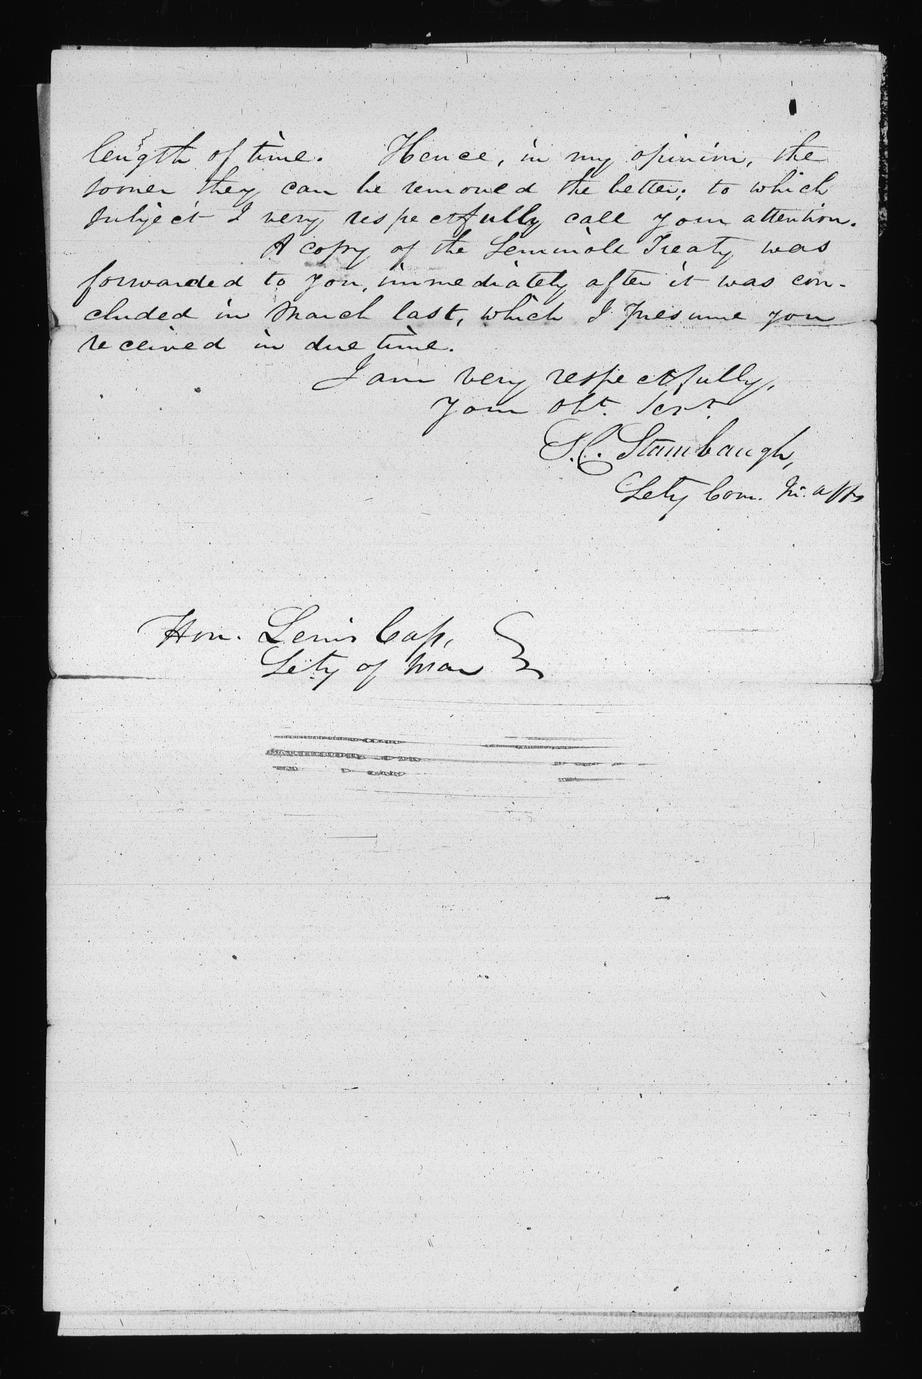 length of time. Hence, in my opinion, the
sooner they can be removed the better; to which
subject I very respectfully call your attention.
A copy of the Seminole Treaty was
forwarded to you, immediately after it was con-
cluded in March last, which I presume you
received in due time.
I am very respectfully,
Your obt. Servt.
S.C. Stambaugh,
Secty Com. In. affs
Hon. Lewis Cass,
Secty of War